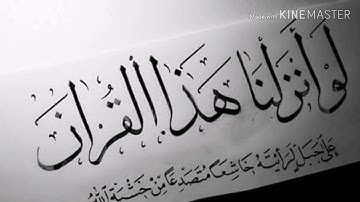 Made with KINEMASTER
لَوْ أَنْزَلْنَا هَذَا الْقُرْآنَ
عَلَى جَبَلٍ لَرَأَيْتَهُ خَاشِعًا مُتَصَدِّعًا مِنْ خَشْيَةِ اللَّهِ